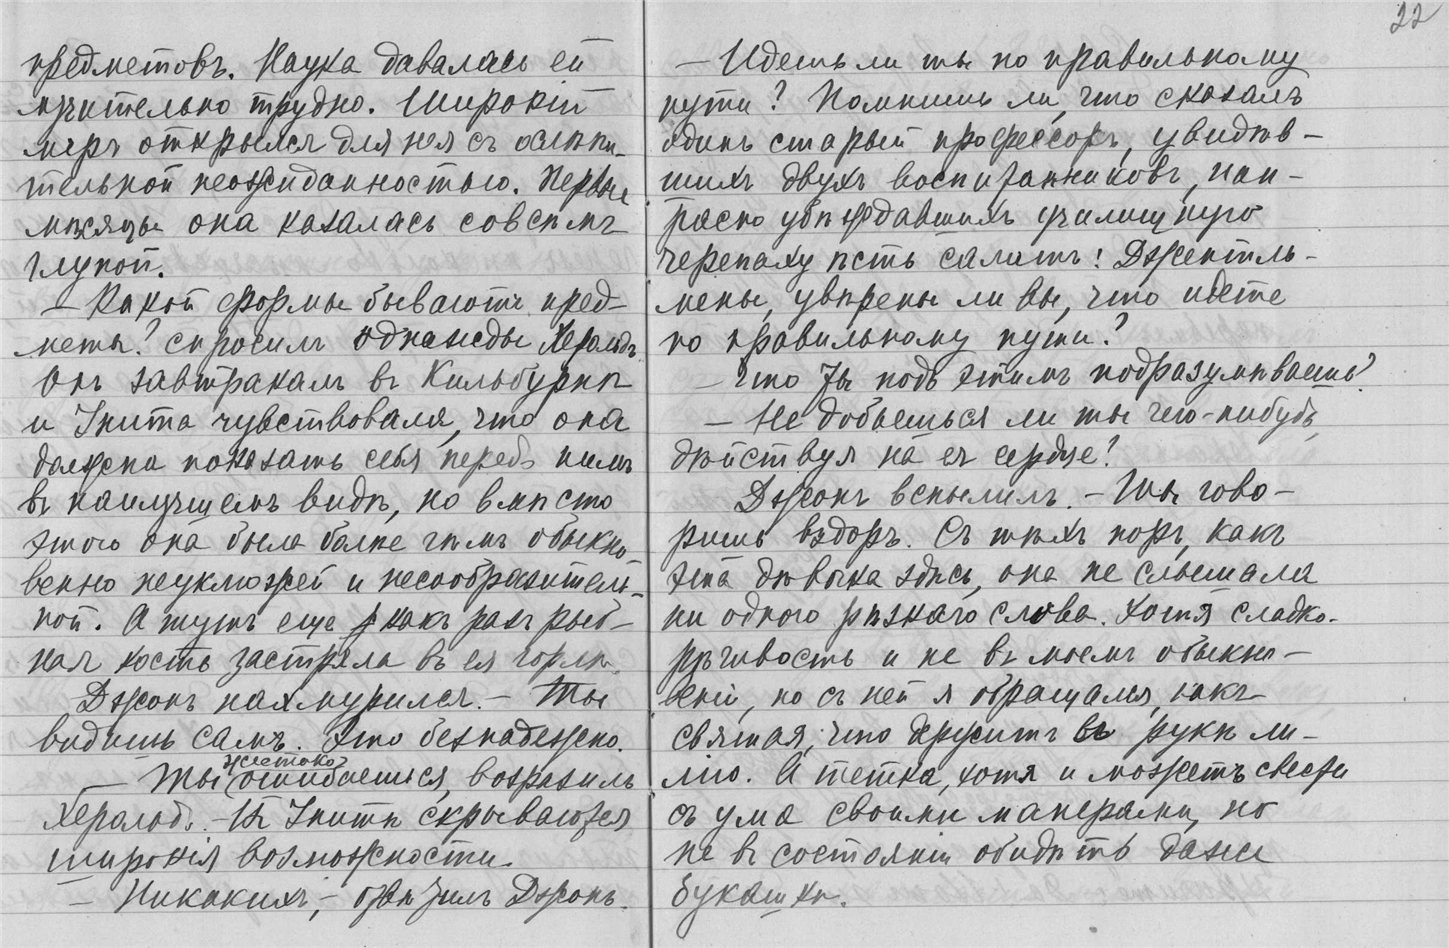 предметовъ. Наука давалась ей
мучительно трудно. Широкій
міръ открылся для нея съ ослѣпи-
тельной неожиданностью. Первые
мѣсяцы она казалась совсѣмъ
глупой.
— Какой формы бываютъ пред-
меты? спросилъ однажды Херольдъ.
Онъ завтракалъ въ Кильбурнѣ
и Унита чувствовала, что она
должна показать себя передъ нимъ
въ наилучшемъ видѣ, но вмѣсто
этого она была болѣе чѣмъ обыкно-
венно неуклюжей и несообразитель-
ной. А тутъ еще какъ разъ рыб-
ная кость застряла въ ея горлѣ.
Джонъ нахмурился. — Ты
видишь самъ. Это безнадежно.
— Ты жестоко ошибаешься, возразилъ
Херольдъ. — Въ Унитѣ скрываются
широкія возможности.
— Никакихъ, — отвѣтилъ Джонъ.
22
— Идешь ли ты по правильному
пути? Помнишь ли, что сказалъ
одинъ старый профессоръ, увидѣв-
шихъ двухъ воспитанниковъ, нап-
расно убѣждавшихъ училищную
черепаху ѣсть салатъ: Джентль-
мены, увѣрены ли вы, что идете
по правильному пути?
— Что ты подъ этимъ подразумѣваешь?
— Не добьешься ли ты чего-нибудь,
дѣйствуя на ея сердце?
Джонъ вспылилъ. — Ты гово-
ришь вздоръ. Съ тѣхъ поръ, какъ
эта дѣвочка здѣсь, она не слышала
ни одного рѣзкаго слова. Хотя сладко-
рѣчивость и не въ моемъ обыкно-
веніи, но съ ней я обращался, какъ
святая, что держитъ въ рукѣ ли-
лію. А тетка, хотя и можетъ свести
съ ума своими манерами, но
не въ состояніи обидѣть даже
букашки.